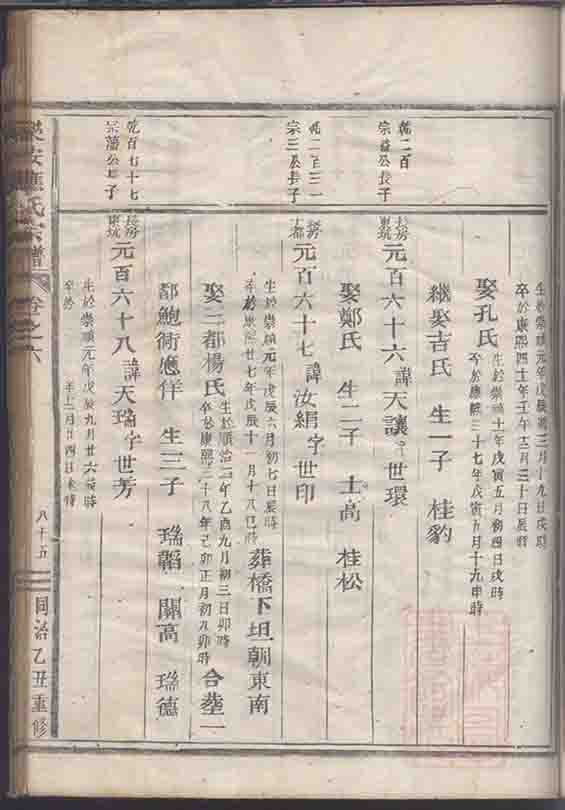 生於崇禎元年戊辰三月十九日戌時
卒於康熙四十一年壬午三月三十日辰時
娶孔氏
生於崇禎十一年戊寅五月初四日戌時
卒於康熙三十七年戊寅五月十九申時
繼娶吉氏 生一子 桂豹
乾二百
宗益公長子
長房
東坑
元百六十六諱天讓字世環
娶鄭氏 生二子 士高 桂松
乾二百三一
宗三公長子
元百六十七諱汝絹字世印
生於崇禎元年戊辰六月初七日辰時
卒於康熙廿七年戊辰十一月十八巳時
葬橋下坦一朝東南
娶三都楊氏
生於順治二年乙酉九月初三日卯時
卒於康熙三十八年己卯正月初九卯時
合塟一
都鮑術應佯 生三子 瑞韜 關高 瑞德
乾百七十七
宗藩公長子
長房
東坑
元百六十八諱天瑞字世芳
生於崇禎元年戊辰九月廿六癸時
卒於 年十二月廿四日未時
樂安 氏宗譜
卷之六
八十五
同治乙丑重修